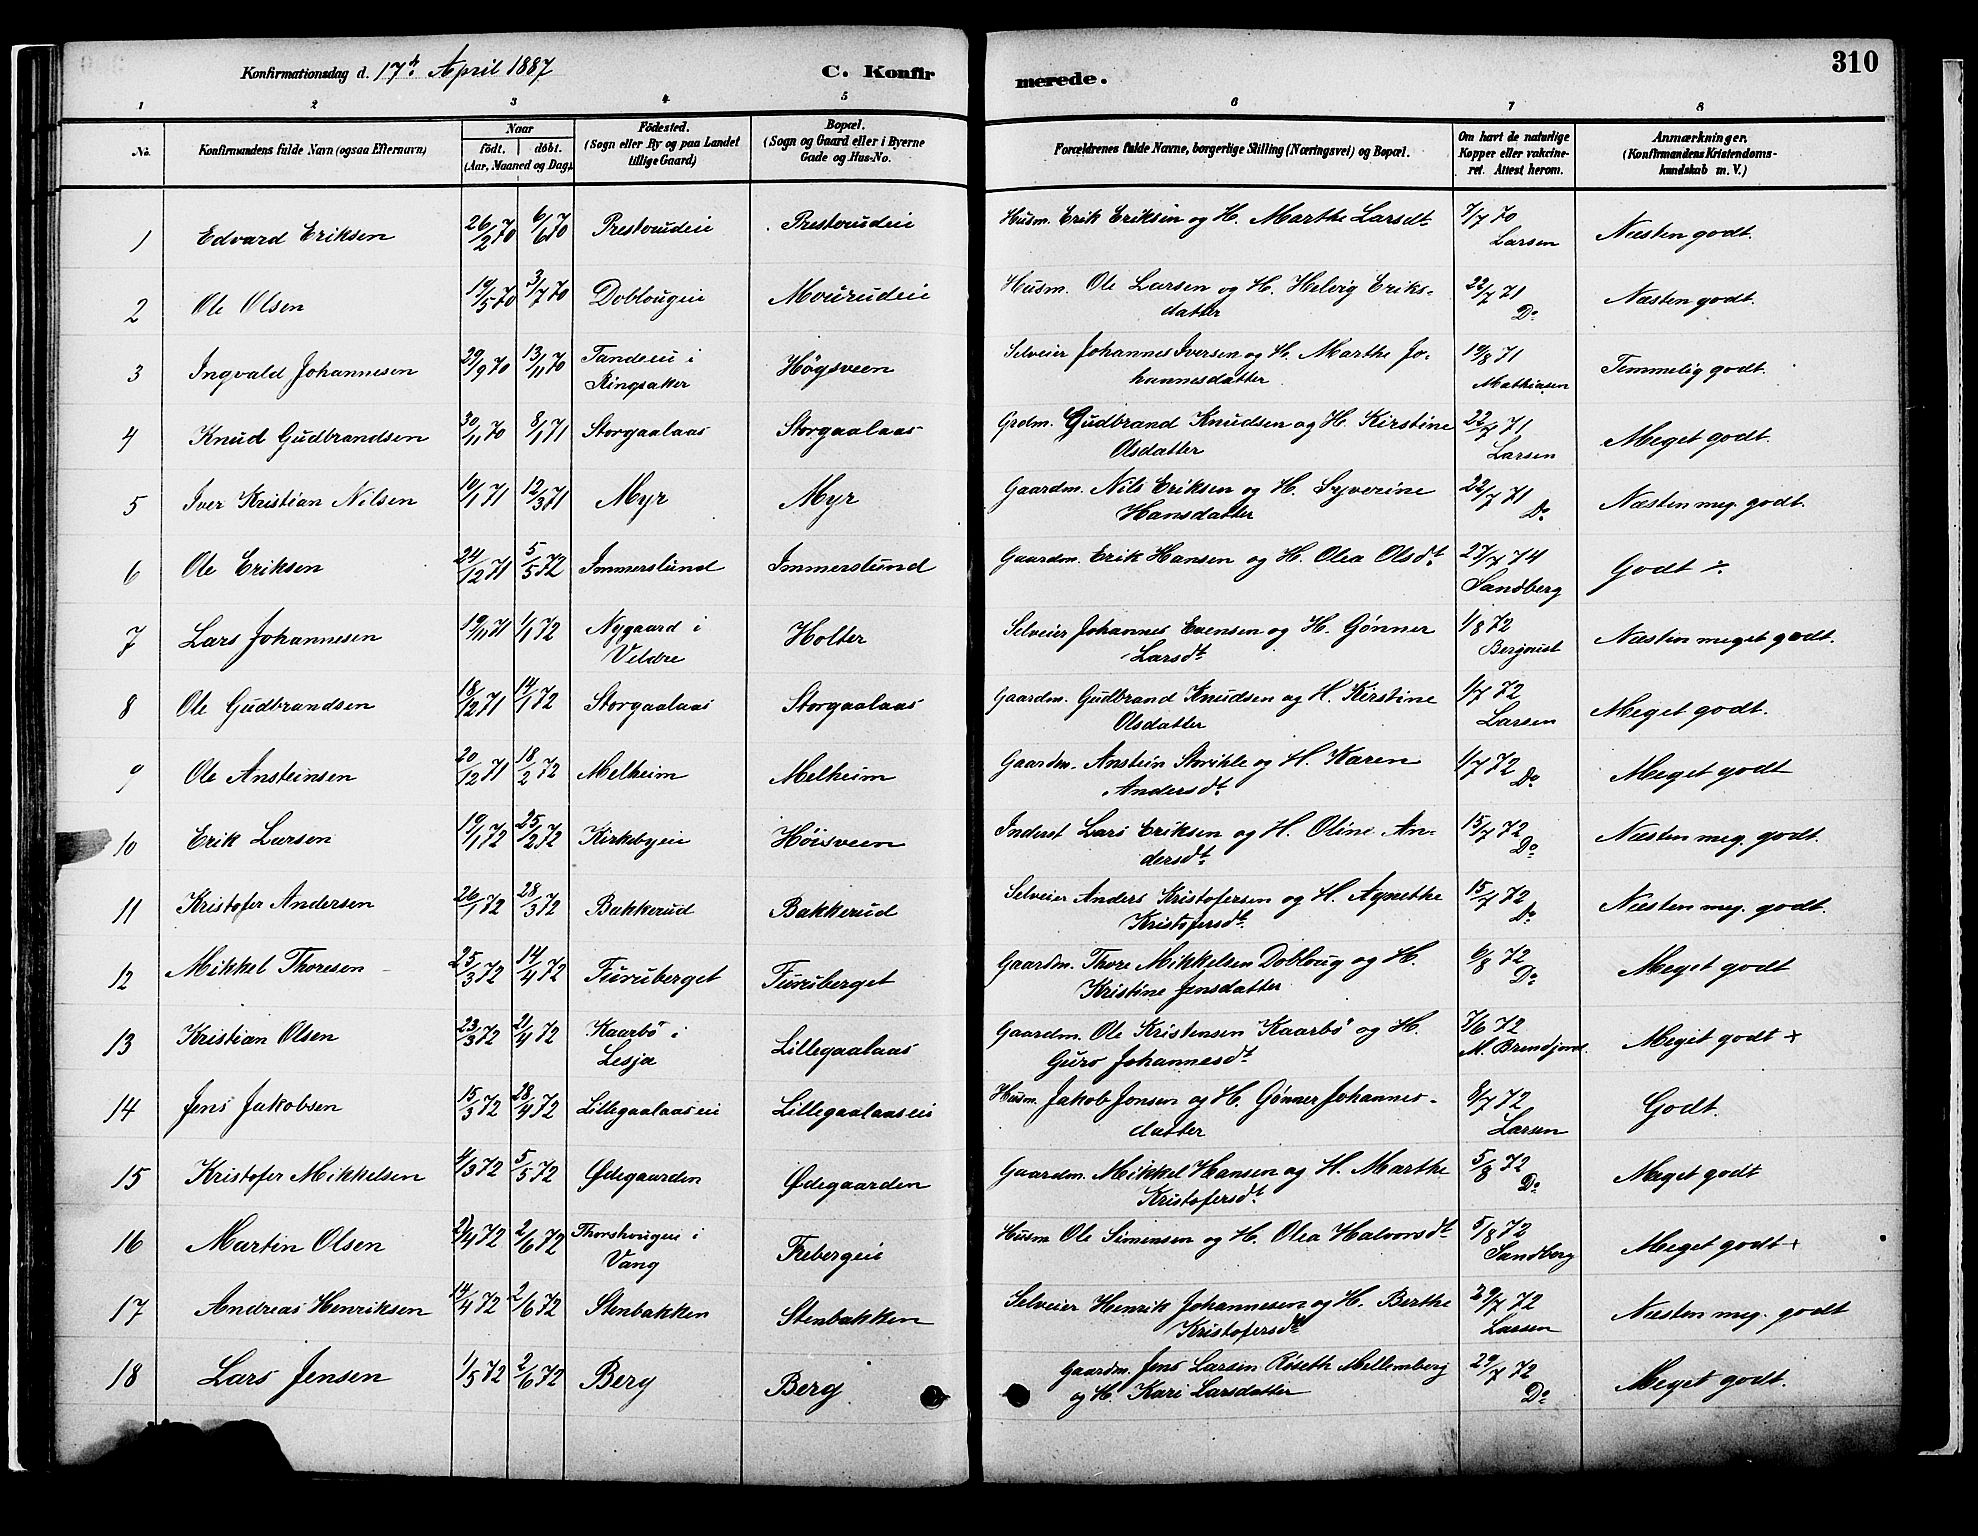 Konfirmationsdag d. 17de April 1887 C. Konfirmerede. 310
1 2 3 4 5 6 7 8
No. Konfirmandens fulde Navn (ogsaa Efternavn) Naar födt. döbt. (Aar, Maaned og Dag). Födested. (Sogn eller By og paa Landet tillige Gaard) Bopæl. (Sogn og Gaard eller i Byerne Gade og Hus-No. Forældrenes fulde Navne, borgerlige Stilling (Næringsvei) og Bopæl. Om havt de naturlige Kopper eller vakcineret. Attest herom. Anmærkninger. (Konfirmandens Kristendomskundskab m. V.)
1 Edvard Eriksen 26/2 70 6/6 70 Prestrudeie Prestrudeie Husm. Erik Eriksen og H. Marthe Larsdt 7/7 70 Larsen Næsten godt.
2 Ole Olsen 19/5 70 3/7 70 Doblougeie Mourudeie Husm. Ole Larsen og H. Helvig Eriksdatter 22/7 71 Do Næsten godt.
3 Ingvald Johannesen 29/9 70 13/11 70 Tandeeie i Ringsaker Högsveen Selveier Johannes Iversen og H. Marthe Johannesdatter 19/8 71 Mathiasen Temmelig godt.
4 Knud Gudbrandsen 30/11 70 8/1 71 Storgaalaas Storgaalaas Grdm. Gudbrand Knudsen og H. Kirstine Olsdatter 22/7 71 Larsen Meget godt.
5 Iver Kristian Nilsen 10/1 71 12/3 71 Myr Myr Gaardm. Nils Eriksen og H. Syverine Hansdatter 22/7 71 Do Næsten meg. godt.
6 Ole Eriksen 24/12 71 5/5 72 Immerslund Immerslund Gaardm. Erik Hansen og H. Olea Olsdt 27/7 74 Sandberg Godt ÷
7 Lars Johannesen 19/11 71 1/1 72 Nygaard i Veldre Holter Selveier Johannes Evensen og H. Gønner Larsdt 1/8 72 Bergqvist Næsten meget godt.
8 Ole Gudbrandsen 18/12 71 14/1 72 Storgaalaas Storgaalaas Gaardm. Gudbrand Knudsen og H. Kirstine Olsdatter 1/7 72 Larsen Meget godt.
9 Ole Ansteinsen 20/12 71 18/2 72 Melheim Melheim Gaardm. Anstein og H. Karen Andersdt 1/7 72 Do Meget godt
10 Erik Larsen 19/1 72 25/2 72 Kirkebyeie Höisveen Inderst Lars Eriksen og H. Oline Andersdt 15/7 72 Do Næsten meg. godt.
11 Kristofer Andersen 26/1 72 28/3 72 Bakkerud Bakkerud Selveier Anders Kristofersen og H. Agnethe Kristofersdt 15/7 72 Do Næsten meg. godt.
12 Mikkel Thoresen 25/3 72 14/4 72 Furuberget Furuberget Gaardm. Thore Mikkelsen Dobloug og H. Kristine Jensdatter 6/8 72 Do Meget godt
13 Kristian Olsen 23/3 72 21/4 72 Kaarbö i Lesja Lillegaalaas Gaardm. Ole Kristensen Kaarbö og H. Guro Johannesdt 7/6 72 Meget godt +
14 Jens Jakobsen 15/3 72 28/4 72 Lillegaalaaseie Lillegaalaaseie Husm. Jakob Jonsen og H. Gønner Johannesdatter 8/7 72 Larsen Godt.
15 Kristofer Mikkelsen 4/3 72 5/5 72 Ødegaarden Ødegaarden Gaardm. Mikkel Hansen og H. Marthe Kristofersdt 5/8 72 Do Meget godt
16 Martin Olsen 21/4 72 2/6 72 Thorshougeie i Vang Frebergeie Husm Ole Simensen og H. Olea Halvorsdt 5/8 72 Sandberg Meget godt +
17 Andreas Henriksen 14/4 72 2/6 72 Stenbakken Stenbakken Selveier Henrik Johannesen og H. Berthe Kristofersdt 29/7 72 Larsen Næsten meg. godt
18 Lars Jensen 1/5 72 2/6 72 Berg Berg Gaardm. Jens Larsen Røseth Mellemberg og H. Kari Larsdatter 29/7 72 Do Meget godt.